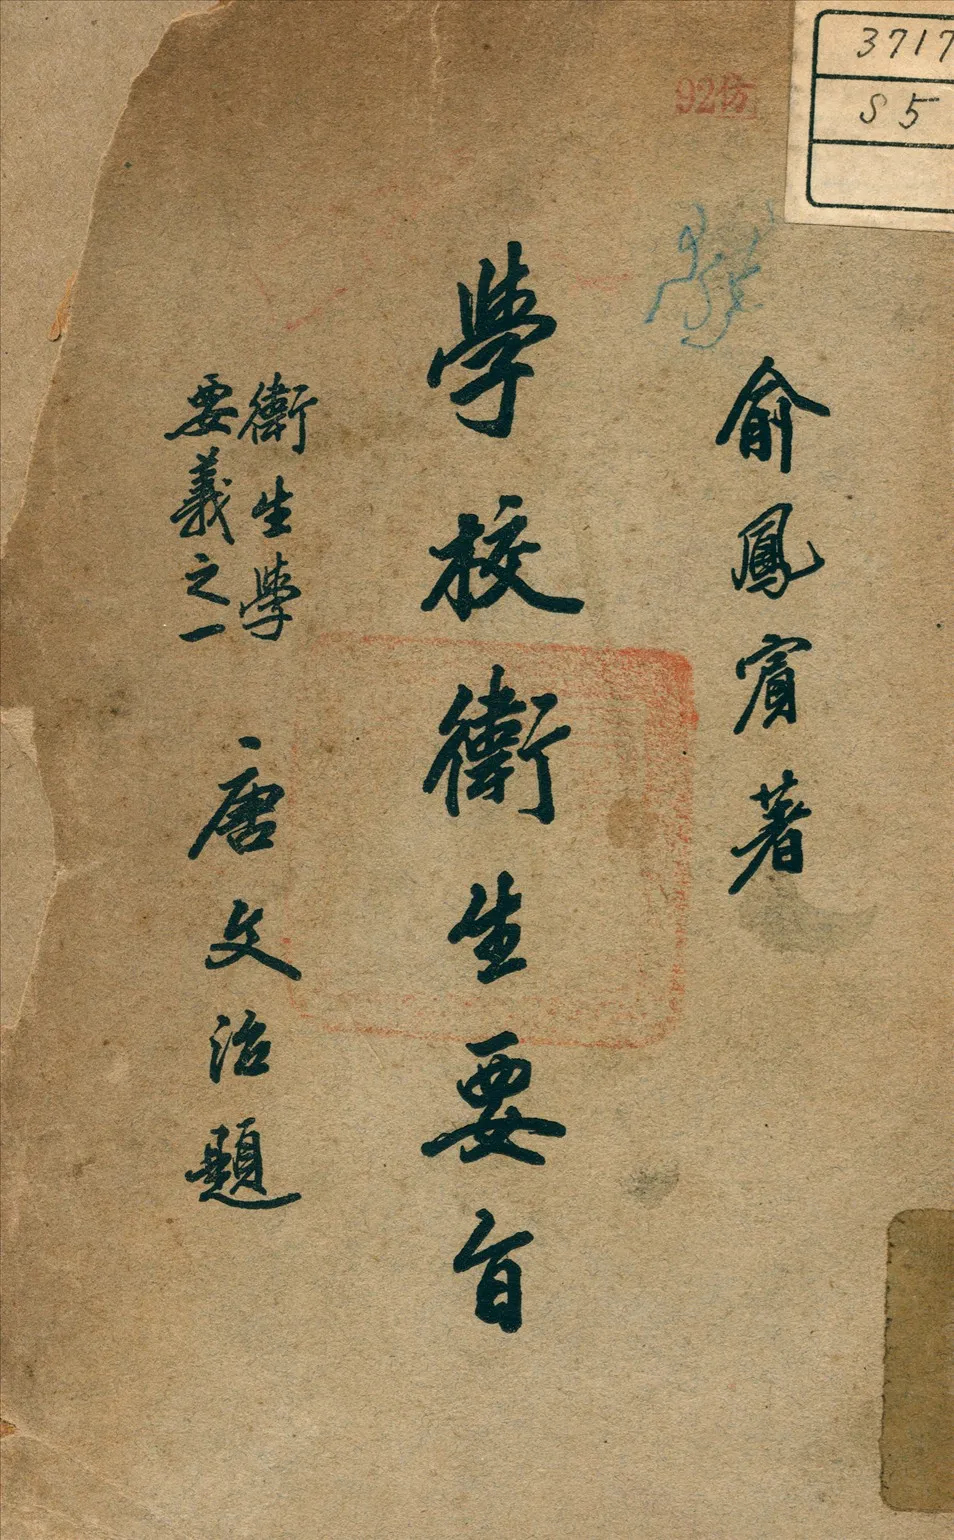 俞鳳賓著
學校衛生要旨
衛生學
要義之一
唐文治題
3717
S5
92仿